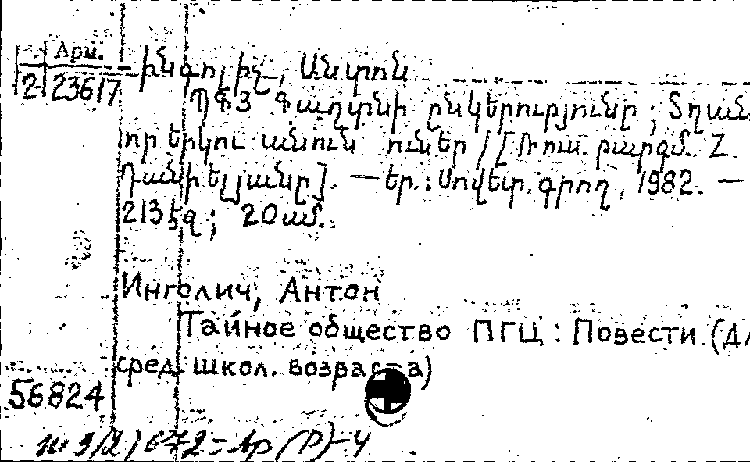 Арм.
2 23617
Ինգոլիչ, Անտոն
ՊՖՑ Գաղտնի ընկերությունը; Տղան,
որ երկու անուն ուներ/[Ռուս. բարգմ. Զ.
Դանիելյանը]. — Եր.: Սովետ. գրող, 1982. —
213 էջ; 20 սմ.
Инголич, Антон
Тайное общество ПГЦ: Повести. (Дл
сред. школ. возраста)
56824